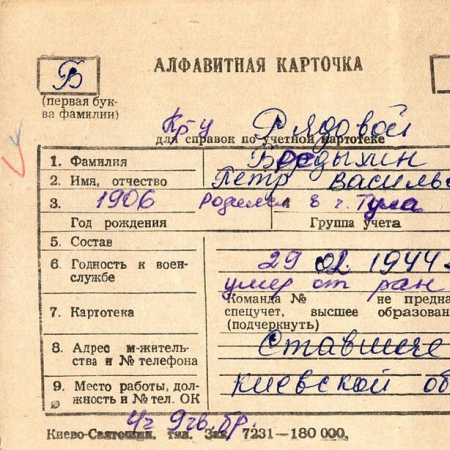 Б
АЛФАВИТНАЯ КАРТОЧКА
(первая бук-
ва фамилии)
Кр-у Рядовой
для справок по учетной картотеке
1. Фамилия
2. Имя, отчество Петр Василье
3. 1906 родился в г. Тула
Год рождения Группа учета
5. Состав
6. Годность к воен-
службе
29 02 1944
умер от ран
Команда № не предна
спецучет, высшее образован
(подчеркнуть)
7. Картотека
8. Адрес м-житель-
ства и № телефона
Ставище
9. Место работы, дол-
жность и № тел. ОК
киевской об
Киево-Святошин. тип. Зак. 7231—180 000.